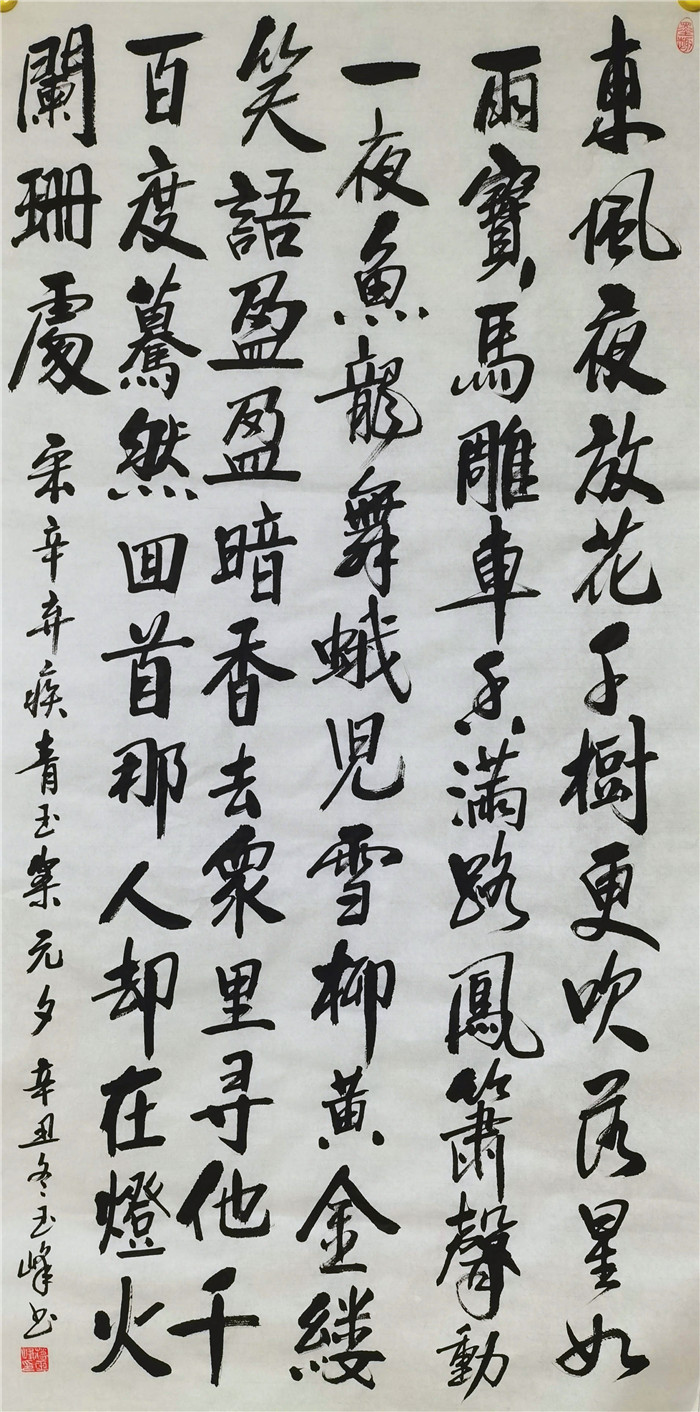 東風夜放花千樹更吹落星如
雨寶馬雕車香滿路鳳簫聲動
一夜魚龍舞蛾児雪柳黄金縷
笑語盈盈暗香去衆里寻他千
百度驀然回首那人却在燈火
闌珊處 宋辛弃疾青玉案元夕 辛丑冬玉峰书